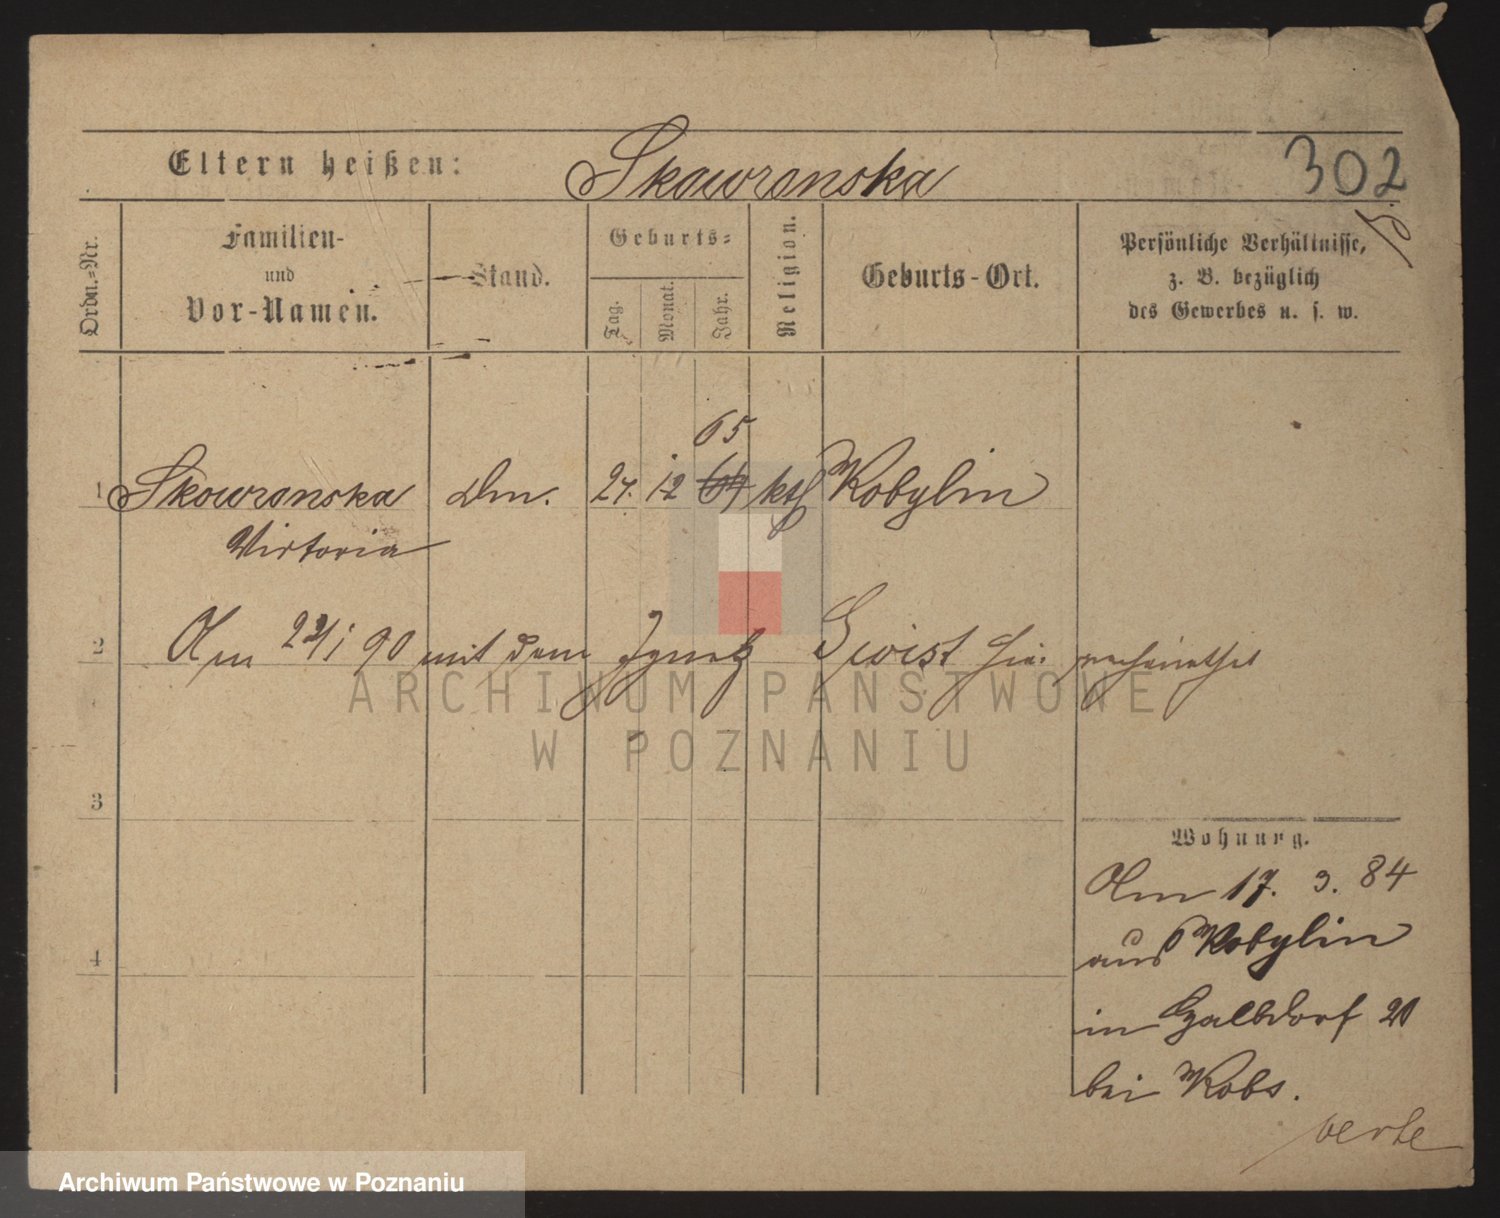 Eltern heißen: Skowronska 302
Ordn.=Nr.
Familien-
und
Vor-Namen.
Stand.
Geburts=
Tag.
Monat.
Jahr.
Religion.
Geburts-Ort.
Persönliche Verhältnisse,
z. B. bezüglich
des Gewerbes u. s. w.
65
1 Skowronska Dm. 27. 12 64 kth Kobylin
Victoria
2 Am 22/1 90 mit dem Ignatz Gwist hier verheirathet
ARCHIWUM PAŃSTWOWE
W POZNANIU
3
Wohnung.
Am 17. 3. 84
4 aus Kobylin
in Halbdorf 20
bei Kobs.
verte
Archiwum Państwowe w Poznaniu